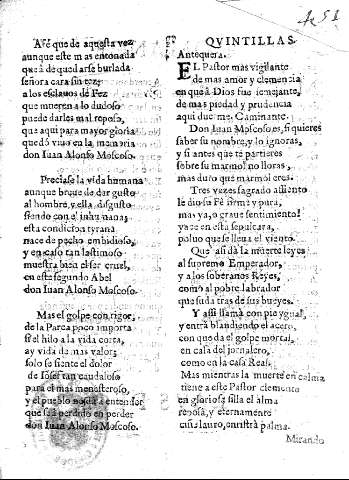 Aſſé que de aqueſta vez
aunque eſte mas entonada
que à de quedarſe burlada
ſeñora cara ſin tez,
a los eſclauos de Fez
que mueren a lo dudoſo
puede darles mal repoſo,
que aqui para mayor gloria
quedó viuo en la memoria
don Iuan Alonſo Moſcoſo.
Preciaſe la vida humana
aunque breue de dar guſto
al hombre, y ella diſguſto
ſiendo con el inhumana;
eſta condicion tyrana
nace de pecho embidioſo,
y en caſo tan laſtimoſo
mueſtra bien el ſer cruel,
en eſte ſegundo Abel
don Iuan Alonſo Moſcoſo.
Mas el golpe con rigor
de la Parca poco importa
ſi el hilo a la vida corta,
ay vida de mas valor;
ſolo ſe ſiente el dolor
de Ioſef tan caudaloſo
para el mas meneſteroſo,
y el pueblo à entender
que ſa à perdido en perder
don Iuan Alonſo Moſcoſo.
451
QVINTILLAS.
Antequera.
EL Paſtor mas vigilante
de mas amor y clemencia
en que à Dios fue ſemejante,
de mas piedad y prudencia
aqui duerme, Caminante.
Don Iuan Moſcoſo es, ſi quieres
ſaber ſu nombre, y lo ignoras,
y ſi antes que te partieres
ſobre ſu marmol no lloras,
mas duro que marmol eres.
Tres vezes ſagrado aſſiento
le dio ſu Fè firme y pura,
mas ya, o graue ſentimiento!
yaze en eſta ſepultura,
poluo que ſe lleua el viento.
Que aſsi dà la muerte leyes
al ſupremo Emperador,
y a los ſoberanos Reyes,
como al pobre labrador
que ſuda tras de ſus bueyes.
Y aſsi llama con pie ygual,
y entra blandiendo el azero,
con que da el golpe mortal,
en caſa del jornalero,
como en la caſa Real.
Mas mientras la muerte en calma
tiene a eſte Paſtor clemente
en glorioſa ſilla el alma
repoſa, y eternamente
ciñe lauro, empuña palma.
Mirando